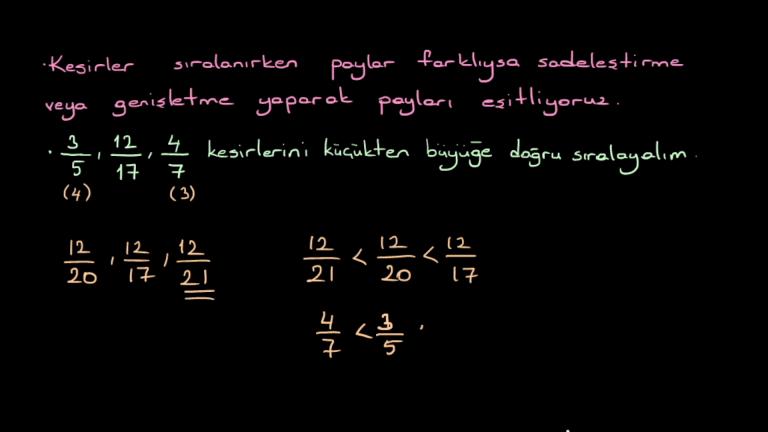 · Kesirler sıralanırken paylar farklıysa sadeleştirme
veya genişletme yaparak payları eşitliyoruz.
· 3/5, 12/17, 4/7 kesirlerini küçükten büyüğe doğru sıralayalım.
(4) (3)
12/20, 12/17, 12/21
12/21 < 12/20 < 12/17
4/7 < 3/5